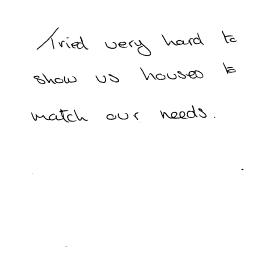 Tried very hard to
show us houses to
match our needs.